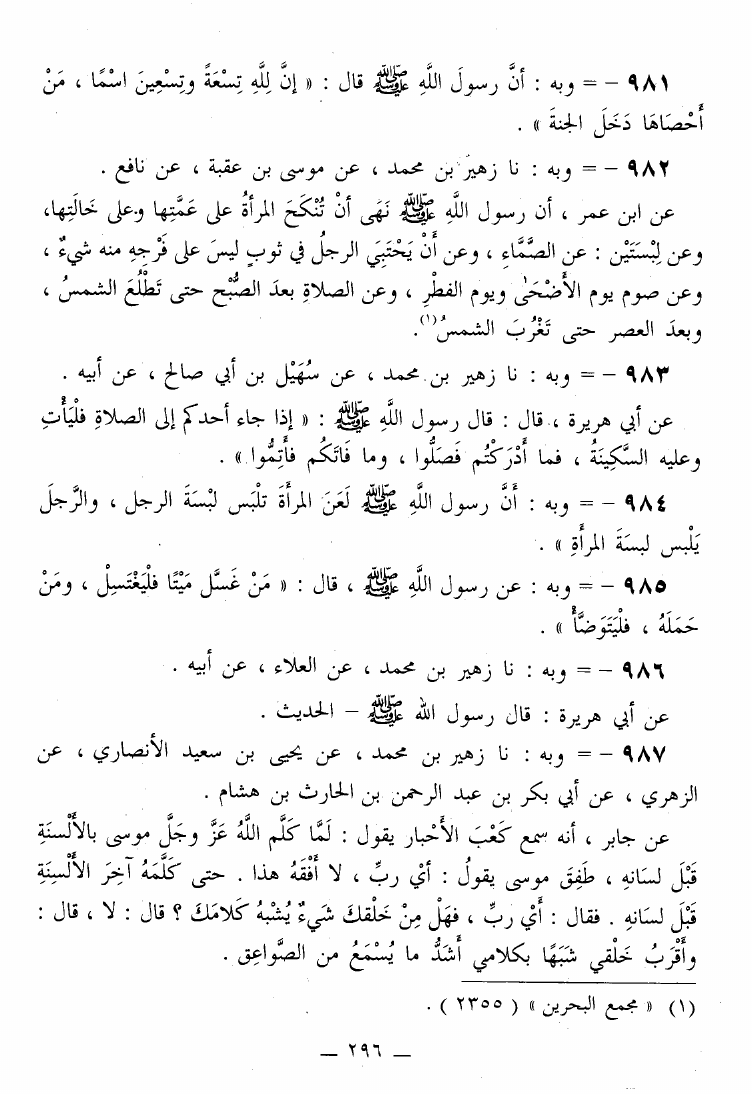 ٩٨١ – = وبه : أنَّ رسولَ اللَّهِ ﷺ قال : « إنَّ لِلَّهِ تِسْعَةً وتِسْعِينَ اسْمًا ، مَنْ
أَحْصَاهَا دَخَلَ الجنةَ » .
٩٨٢ – = وبه : نا زهير بن محمد ، عن موسى بن عقبة ، عن نافع .
عن ابن عمر ، أن رسول اللَّهِ ﷺ نَهَى أنْ تُنْكَحَ المرأةُ على عَمَّتِها وعلى خَالَتِها،
وعن لِبْسَتَيْن : عن الصَّمَّاءِ ، وعن أَنْ يَحْتَبِيَ الرجلُ في ثوبٍ ليسَ على فَرْجِهِ منه شيءٌ ،
وعن صوم يوم الأَضْحَىٰ ويوم الفطْرِ ، وعن الصلاةِ بعدَ الصُّبْح حتى تَطْلُعَ الشمسُ ،
وبعدَ العصر حتى تَغْرُبَ الشمسُ(١).
٩٨٣ – = وبه : نا زهير بن محمد ، عن سُهَيْل بن أبي صالح ، عن أبيه .
عن أبي هريرة ، قال : قال رسول اللَّهِ ﷺ : « إذا جاء أحدكم إلى الصلاةِ فلْيَأْتِ
وعليه السَّكِينَةُ ، فما أَدْرَكْتُم فَصَلُّوا ، وما فَاتَكُم فأَتِمُّوا » .
٩٨٤ – = وبه : أَنَّ رسول اللَّهِ ﷺ لَعَنَ المرأةَ تَلْبَس لبْسَةَ الرجل ، والرَّجلَ
يَلْبس لبسَةَ المرأةِ » .
٩٨٥ – = وبه : عن رسول اللَّهِ ﷺ ، قال : « مَنْ غَسَّل مَيْتًا فليَغْتَسِلْ ، ومَنْ
حَمَلَهُ ، فلْيَتَوَضَّأْ » .
٩٨٦ – = وبه : نا زهير بن محمد ، عن العلاء ، عن أبيه .
عن أبي هريرة : قال رسول الله ﷺ – الحديث .
٩٨٧ – = وبه : نا زهير بن محمد ، عن يحيى بن سعيد الأنصاري ، عن
الزهري ، عن أبي بكر بن عبد الرحمن بن الحارث بن هشام .
عن جابر ، أنه سمع كَعْبَ الأَحْبار يقول : لَمَّا كَلَّم اللَّهُ عَزَّ وجَلَّ موسى بالأَلْسنَةِ
قَبْلَ لسَانهِ ، طَفِقَ موسى يقولُ : أيْ ربِّ ، لا أَفْقَهُ هذا . حتى كَلَّمَهُ آخِرَ الأَلْسِنَةِ
قَبْلَ لسَانِهِ . فقال : أَيْ ربِّ ، فهَلْ مِنْ خَلْقكَ شَيءٌ يُشْبهُ كَلامَكَ ؟ قال : لا ، قال :
وأَقْرَبُ خَلْقي شَبَهًا بكلامي أَشَدُّ ما يُسْمَعُ من الصَّواعِق .
(١) « مجمع البحرين » ( ٢٣٥٥ ) .
– ٢٩٦ –